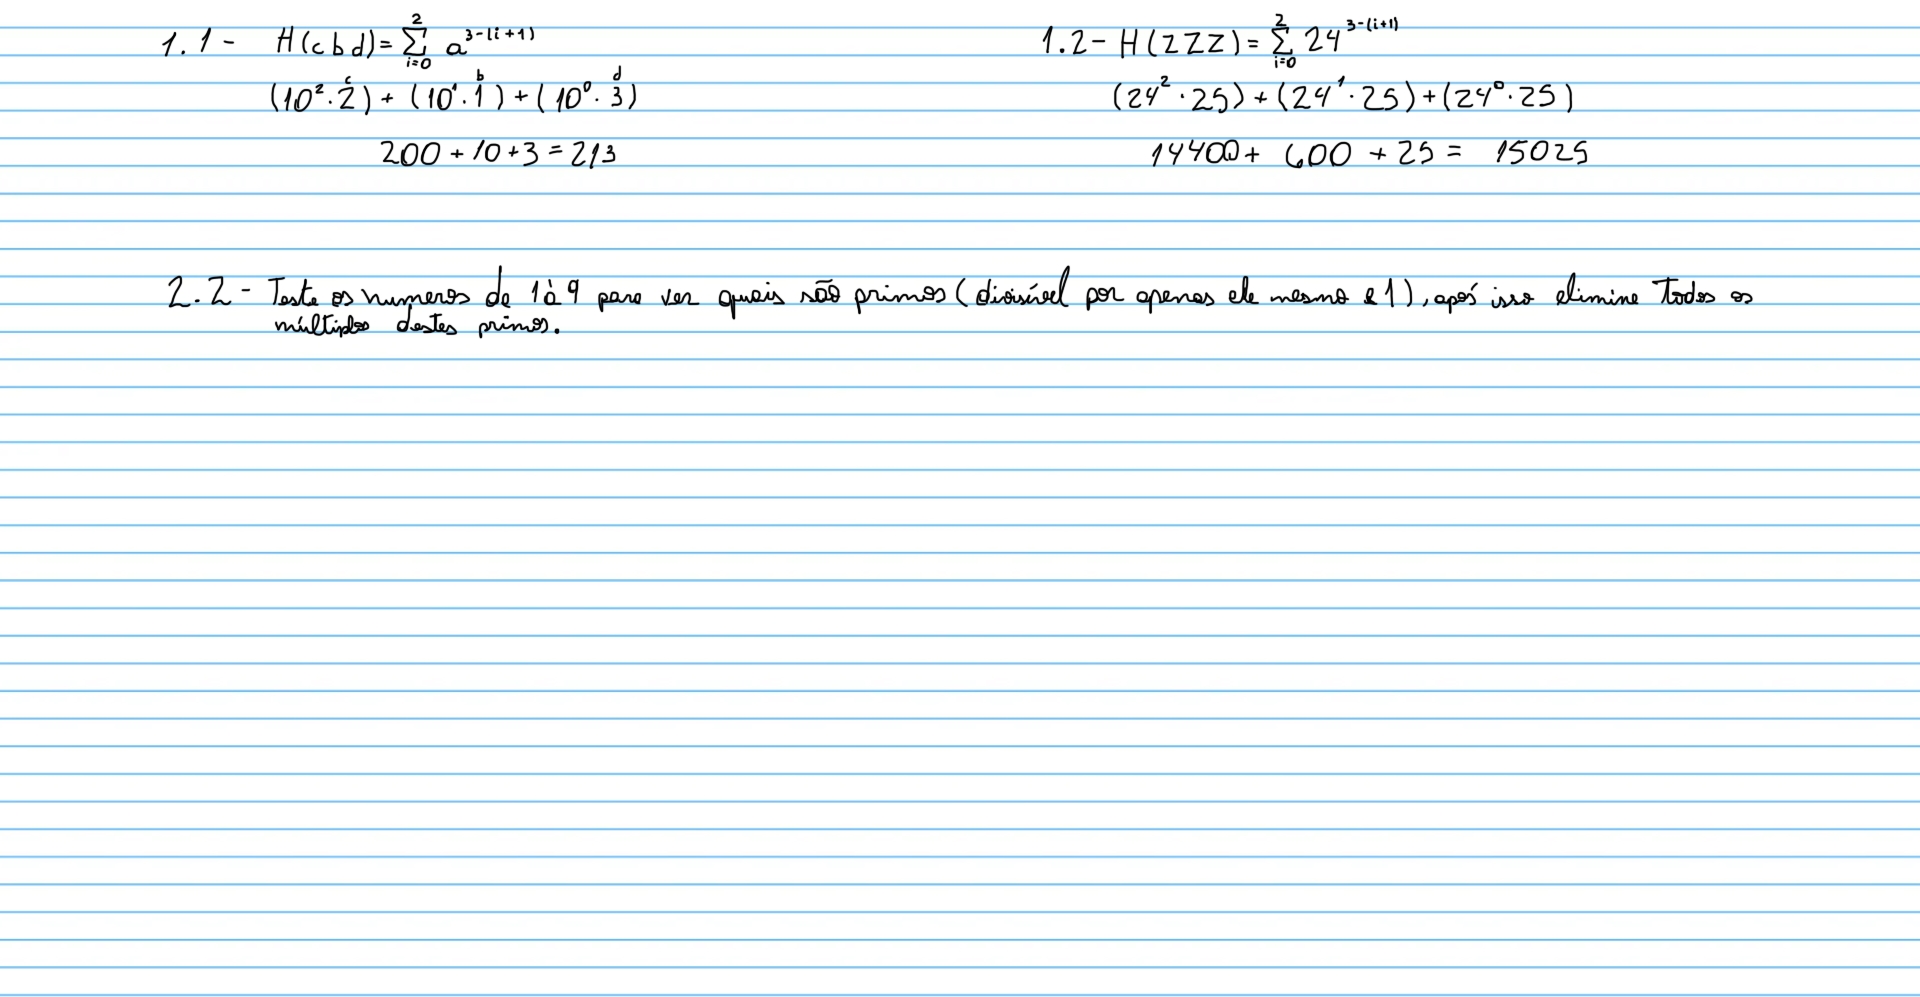 1.1- H(cbd)= 2 Σ i=0 a^3-(i+1)
(10² · 2) + (10¹ · 1) + (10⁰ · 3) c b d
200 + 10 + 3 = 213
1.2- H(zzz)= 2 Σ i=0 24^3-(i+1)
(24² · 25) + (24¹ · 25) + (24⁰ · 25)
14400 + 600 + 25 = 15025
2.2- Teste os numeros de 1 à 9 para ver quais são primos (divisível por apenas ele mesmo e 1), após isso elimine todos os
múltiplos destes primos.